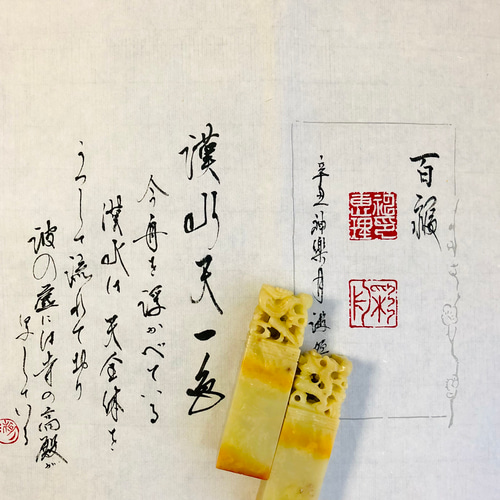 百福
辛丑神樂月
彩月
漢水天一色
今舟を浮かべている
漢水は天全体を
うつして流れており
波の底には寺の高殿が
している